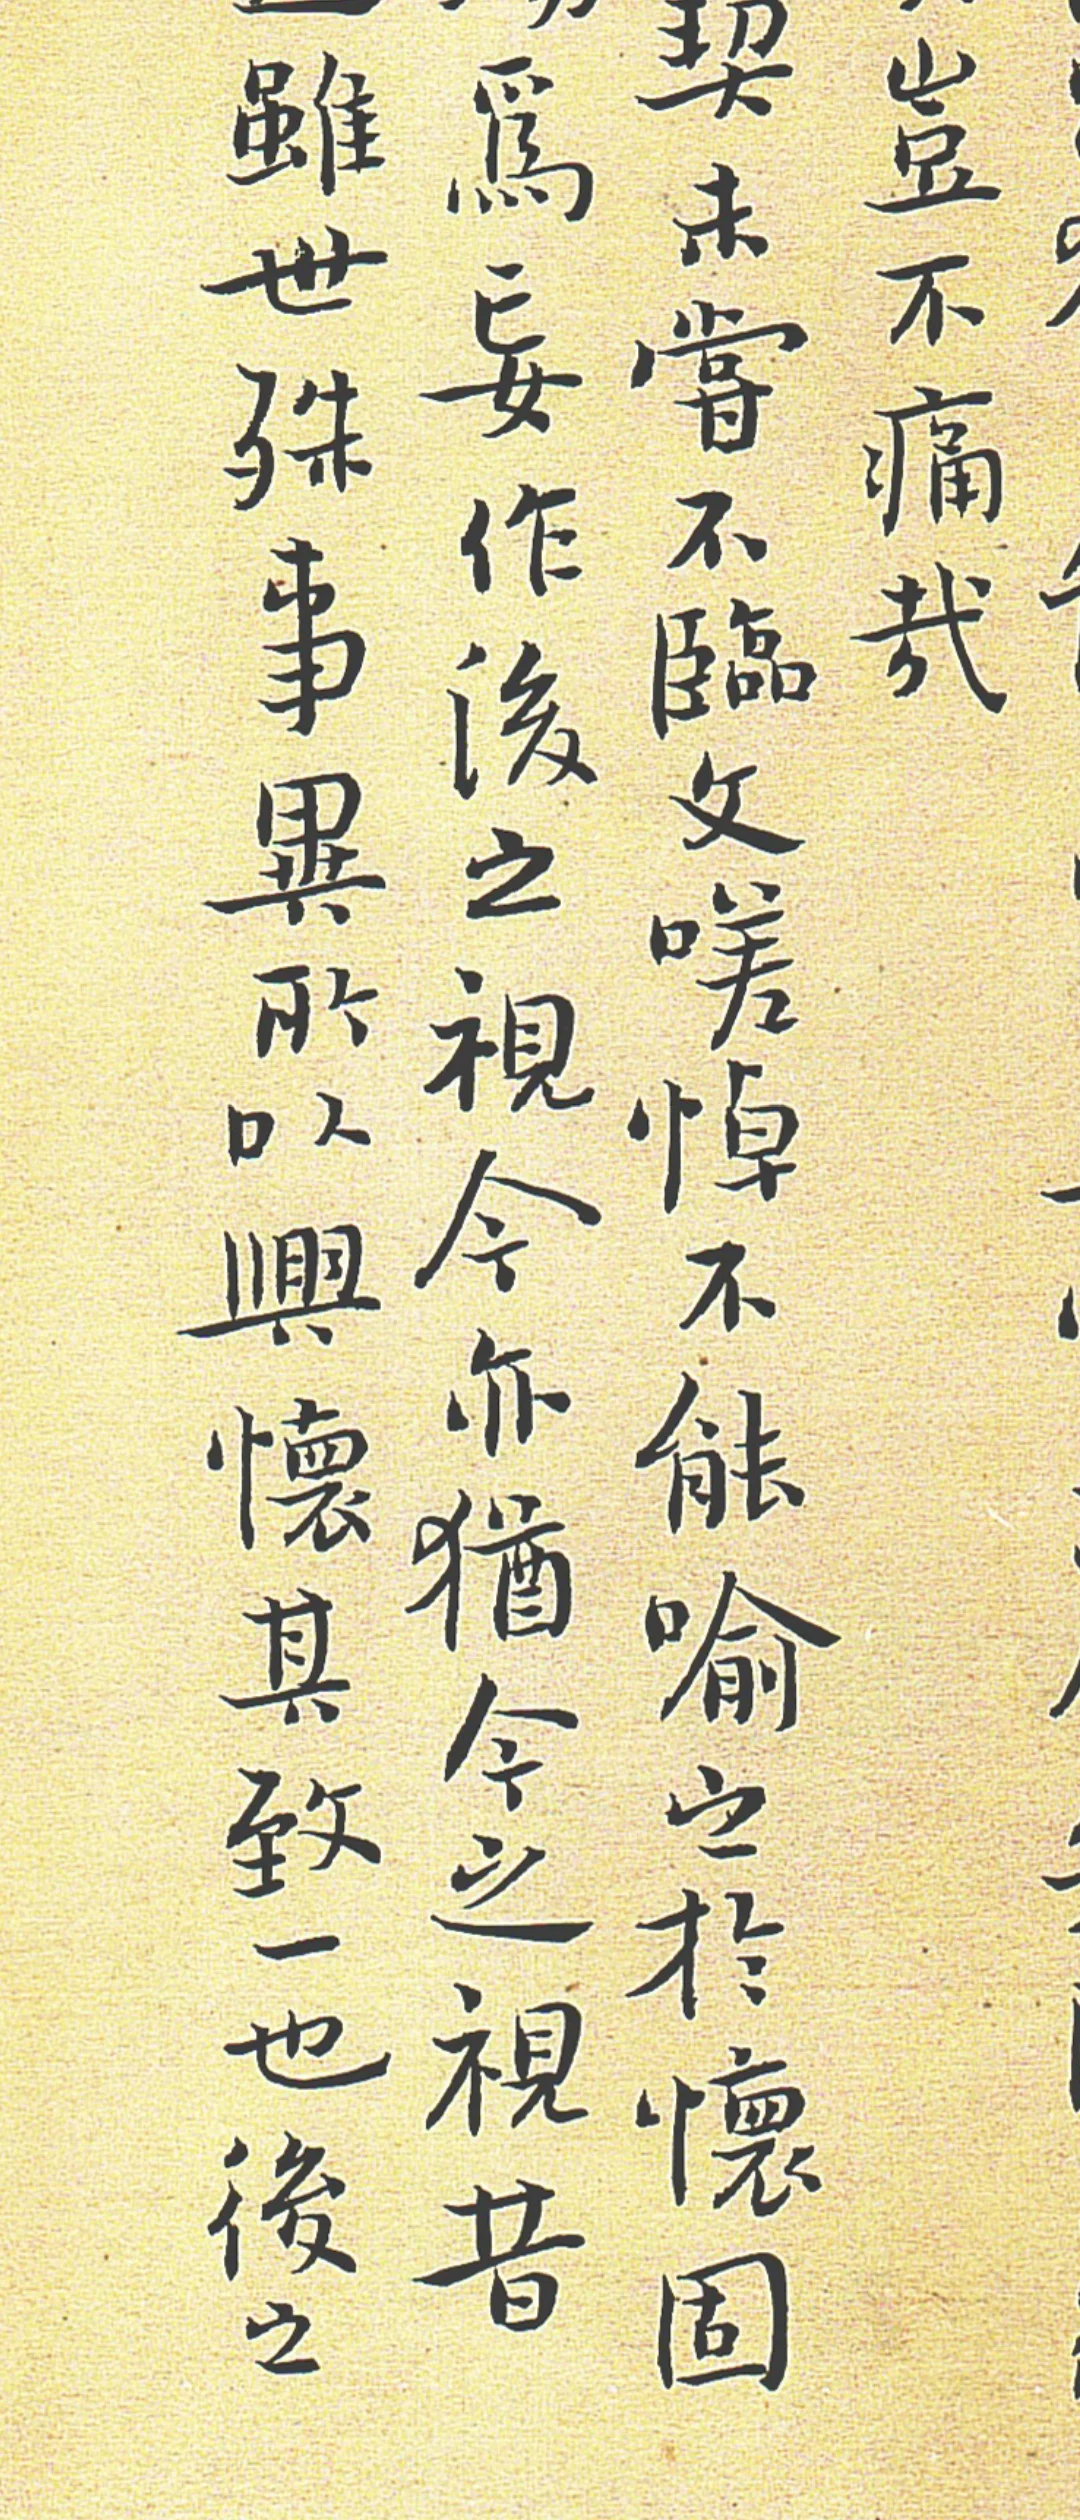 豈不痛哉
契未嘗不臨文嗟悼不能喻之於懷固
為妄作後之視今亦猶今之視昔
雖世殊事異所以興懷其致一也後之